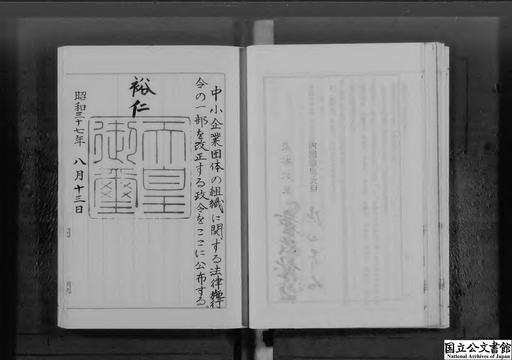 中小企業団体の組織に関する法律施行
令の一部を改正する政令をここに公布する。
裕仁
天皇
御璽
昭和三十七年 八月十三日
国立公文書館
National Archives of Japan